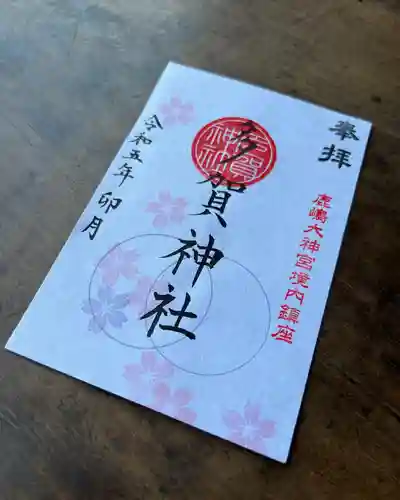 奉拝
鹿嶋大神宮境内鎮座
多賀神社
令和五年 卯月